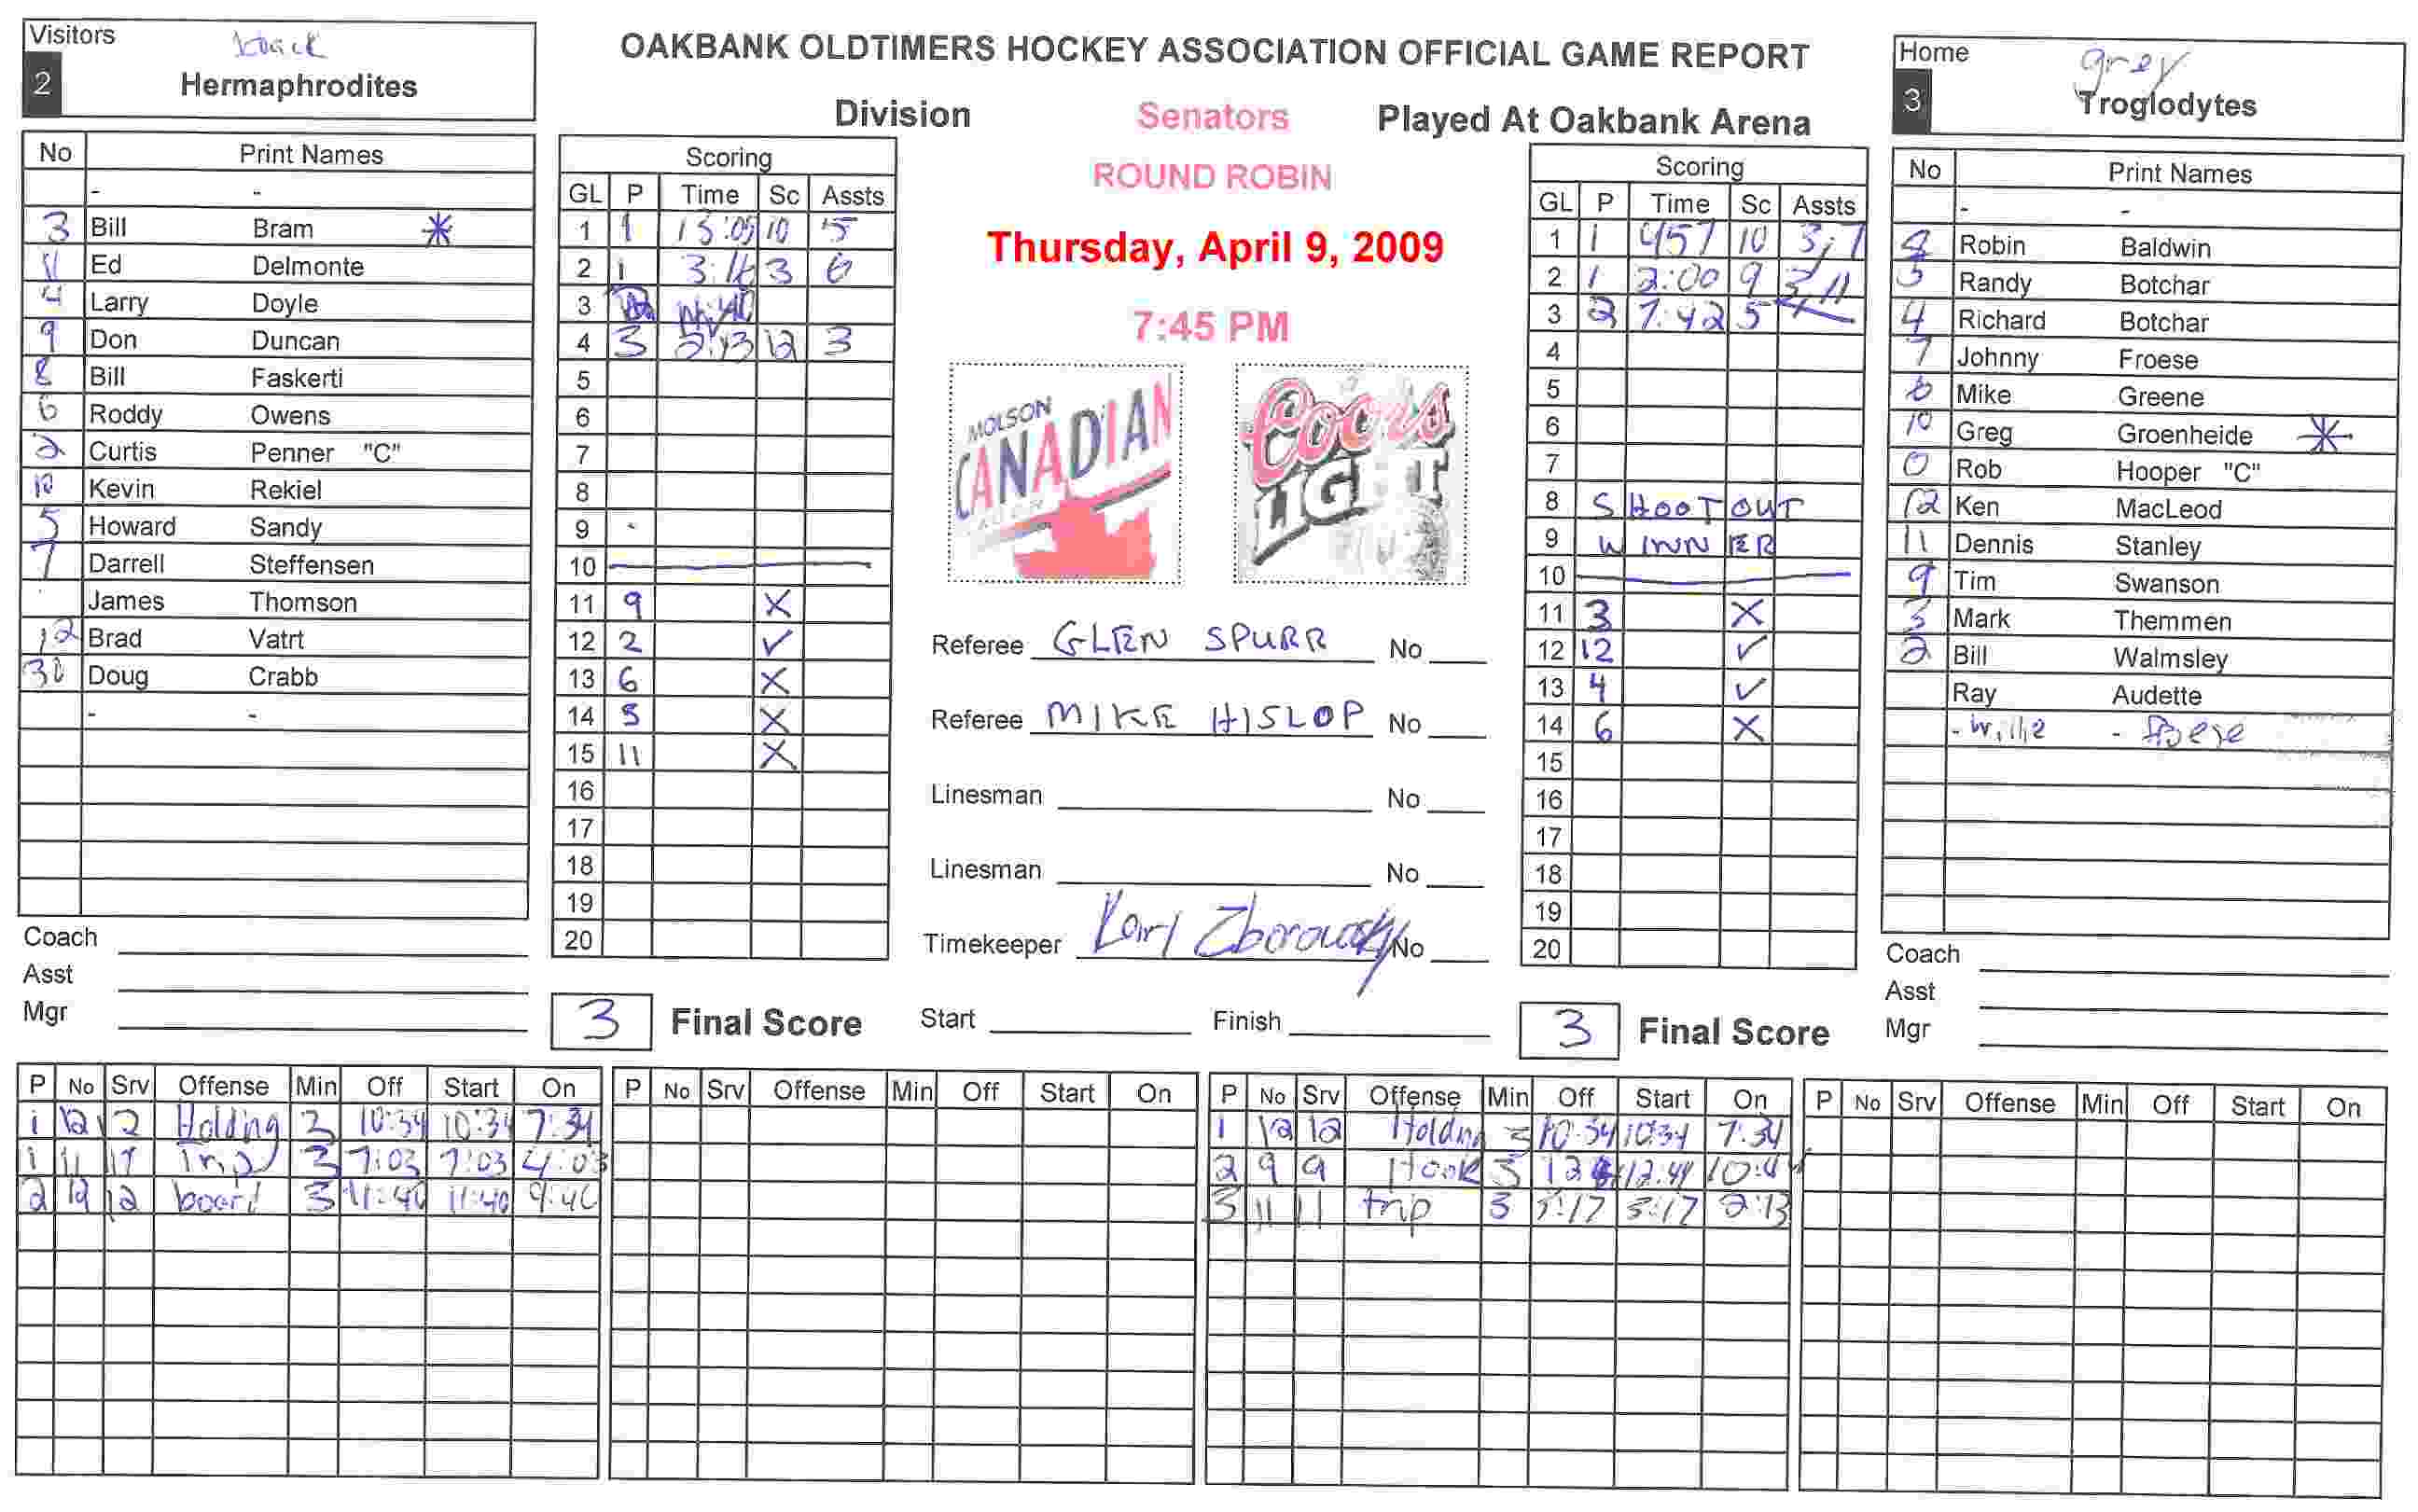 Visitors
black
2
Hermaphrodites
OAKBANK OLDTIMERS HOCKEY ASSOCIATION OFFICIAL GAME REPORT
Division Senators Played At Oakbank Arena
ROUND ROBIN
Thursday, April 9, 2009
7:45 PM
MOLSON
CANADIAN
Coors
LIGHT
Home
grey
3
Troglodytes
No Print Names
- -
3 Bill Bram *
11 Ed Delmonte
4 Larry Doyle
9 Don Duncan
8 Bill Faskerti
6 Roddy Owens
2 Curtis Penner "C"
10 Kevin Rekiel
5 Howard Sandy
7 Darrell Steffensen
James Thomson
12 Brad Vatrt
30 Doug Crabb
- -
Coach
Asst
Mgr
Scoring
GL P Time Sc Assts
1 1 13:05 10 5
2 1 3:16 3 6
3
4 3 2:13 12 3
5
6
7
8
9
10
11 9 X
12 2 ✓
13 6 X
14 5 X
15 11 X
16
17
18
19
20
3 Final Score
Referee GLEN SPURR No
Referee MIKE HISLOP No
Linesman No
Linesman No
Timekeeper Karl Zborowsky No
Start Finish
Scoring
GL P Time Sc Assts
1 1 457 10 3,7
2 1 2:00 9 3,11
3 2 7:42 5
4
5
6
7
8 SHOOTOUT
9 WINNER
10
11 3 X
12 12 ✓
13 4 ✓
14 6 X
15
16
17
18
19
20
3 Final Score
No Print Names
- -
8 Robin Baldwin
5 Randy Botchar
4 Richard Botchar
7 Johnny Froese
6 Mike Greene
10 Greg Groenheide *
0 Rob Hooper "C"
12 Ken MacLeod
11 Dennis Stanley
9 Tim Swanson
3 Mark Themmen
2 Bill Walmsley
Ray Audette
- Willie - Froese
Coach
Asst
Mgr
P No Srv Offense Min Off Start On
1 12 2 Holding 3 10:34 10:34 7:34
1 11 11 Trip 3 7:03 7:03 4:03
2 12 12 board 3 11:46 11:46 9:46
P No Srv Offense Min Off Start On
P No Srv Offense Min Off Start On
1 12 12 Holding 3 10:34 10:34 7:34
2 9 9 Hook 3 12:44 10:44
3 11 11 trip 3 3:17 3:17 2:13
P No Srv Offense Min Off Start On